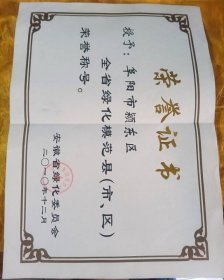 荣誉证书
授予：阜阳市颍东区
全省绿化模范县（市、区）
荣誉称号。
安徽省绿化委员会
二〇一〇年十二月